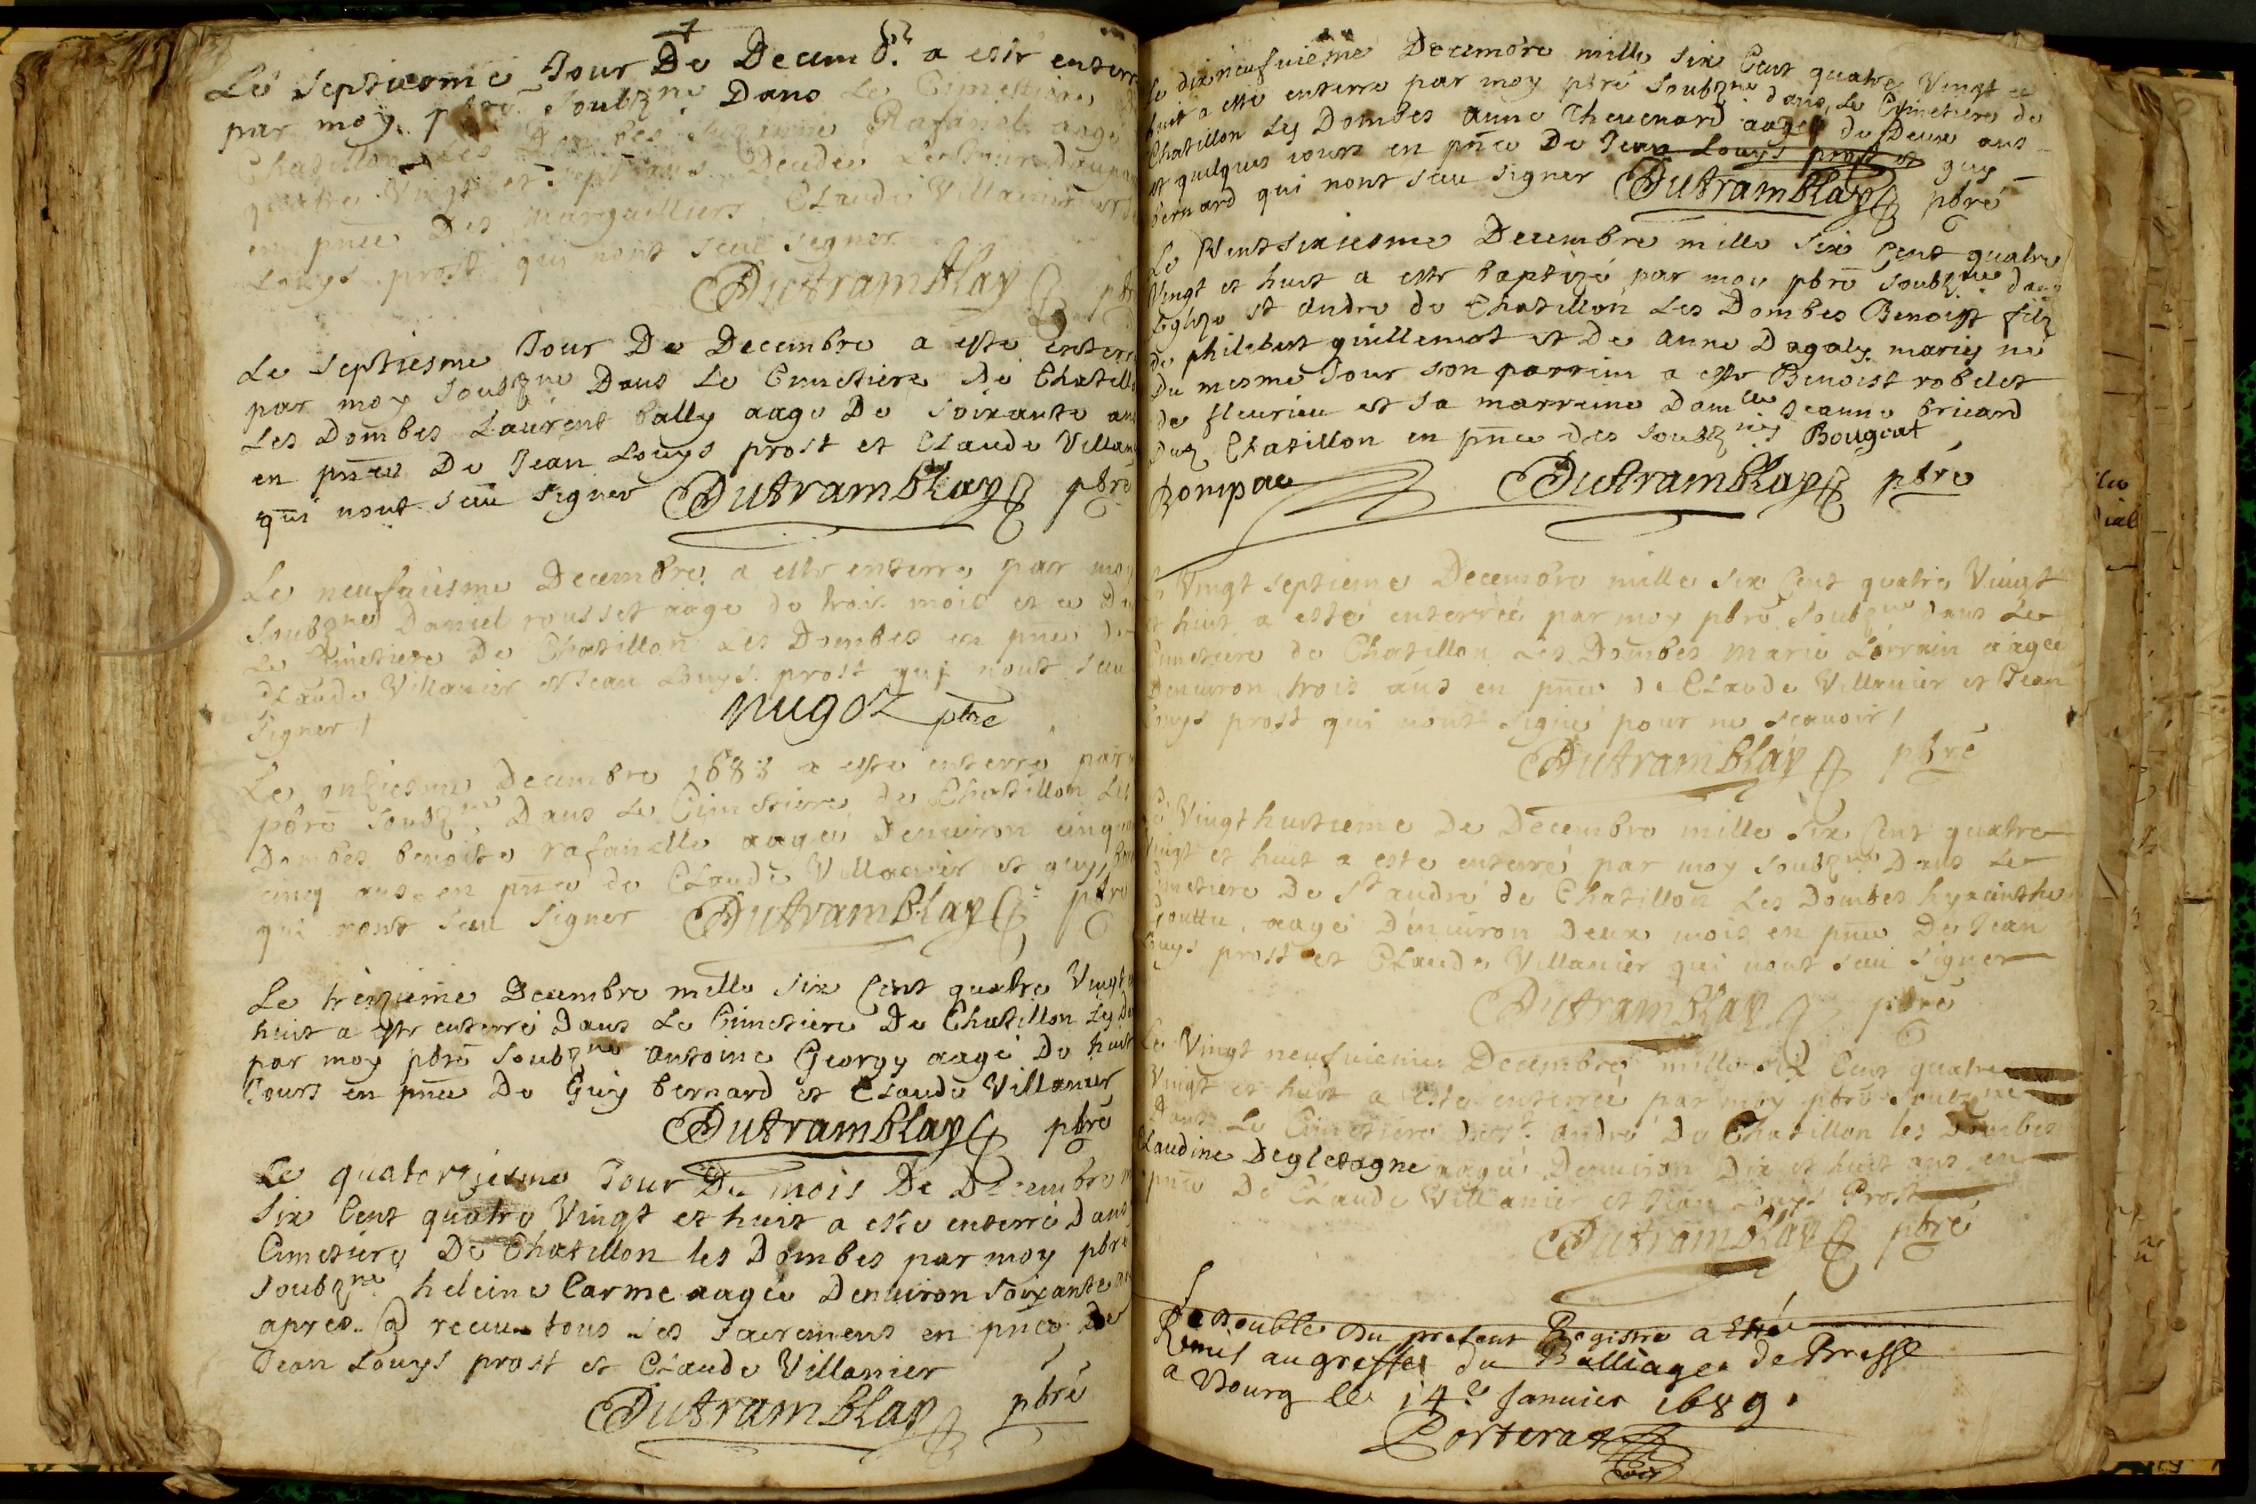 Le septiesme Jour De Decemb.re a esté enterré
par moy pbre soubzne Dans Le Cimetiere
Chatillon Les Dombes Rafanel aagé
quatre Vingt et sept ans Decedée
en pnce Des marguilliers Claude Villanier
Louys prost qui nont sceu signer
Dutramblay pbre
Le septiesme Jour De Decembre a este enterré
par moy soubzne Dans Le Cimetiere De Chatillon
Les Dombes Laurent bally aagé De soixante ans
en pnce De Jean Louys prost et Claude Villanier
qui nont sceu signer Dutramblay pbre
Le neufuiesme Decembre a este enterré par moy
soubzne Daniel rousset aagé de trois mois et ce Dans
Le Cimetiere De Chatillon Les Dombes en pnce de
Claude Villanier et Jean Louys prost qui nont sceu
signer /
nugoz pbre
Le onziesme Decembre 1688 a esté enterré par
pbre soubzne Dans Le Cimetiere de Chatillon Les
Dombes benoite rafanelle aagée Denuiron cinquante
cinq ans en pnce de Claude Villanier et guy
qui nont sceu signer Dutramblay pbre
Le treizieme Decembre mille six Cent quatre Vingt
huit a este enterré Dans Le Cimetiere De Chatillon Les
par moy pbre soubzne antoine Georgy aagé De huit
Jours en pnce De Guy bernard et Claude Villanier
Dutramblay pbre
Le quatorziesme Jour Du mois De Decembre
six Cent quatre Vingt et huit a este enterré Dans
Cimetiere De Chatillon les Dombes par moy pbre
soubzne heleine Carme aagée Denuiron soixante
apres a receu tous ses sacremens en pnce De
Jean Louys prost et Claude Villanier
Dutramblay pbré
Le dixneufuieme Decembre mille six Cent quatre Vingt et
huit a esté enterré par moy pbré soubzne dans Le Cimetiere de
Chatillon Les Dombes anne Thevenard aagée de Deux ans
et quelques iours en pnce De Jean Louys prost et guy
bernard qui nont sceu signer Dutramblay pbré
Le Vent sixiesme Decembre mille six Cent quatre
Vingt et huit a este baptizé par moy pbre soubzne dans
Leglize st andre de Chatillon Les Dombes Benoist filz
de philibert guillemot et De anne Dagaly mariés né
Du mesme Jour son parrein a este Benoist robelet
de fleurieu et sa marreine Damlle Jeanne bricard
Dud Chatillon en pnce des soubznés Bougeat
Rompae Dutramblay pbré
Le Vingt septieme Decembre mille six Cent quatre Vingt
et huit a esté enterrée par moy pbre soubzne dans Le
Cimetiere de Chatillon Les Dombes marie Lorrain aagée
Denuiron trois ans en pnce de Claude Villanier et Jean
Louys prost qui nont signé pour ne scauoir /
Dutramblay pbré
Le Vingt huitieme De Decembre mille six Cent quatre
Vingt et huit a este enterré par moy soubzne Dans Le
Cimetiere De St andré de Chatillon Les Dombes hyacinthe
Gouttu aagé Denuiron Deux mois en pnce De Jean
Louys prost et Claude Villanier qui nont sceu signer
Dutramblay pbré
Le Vingt neufuieme Decembre mille six Cent quatre
Vingt et huit a este enterrée par moy pbre soubzne
Dans Le Cimetiere de st andré De Chatillon les Dombes
Claudine Degletagne aagée Denuiron Dix et huit ans en
pnce De Claude Villanier et Jean Louys Prost
Dutramblay pbré
Le double du present Registre a esté
Remis au greffe du Balliage de Bresse
a Bourg le 14e Januier 1689.
Porterat